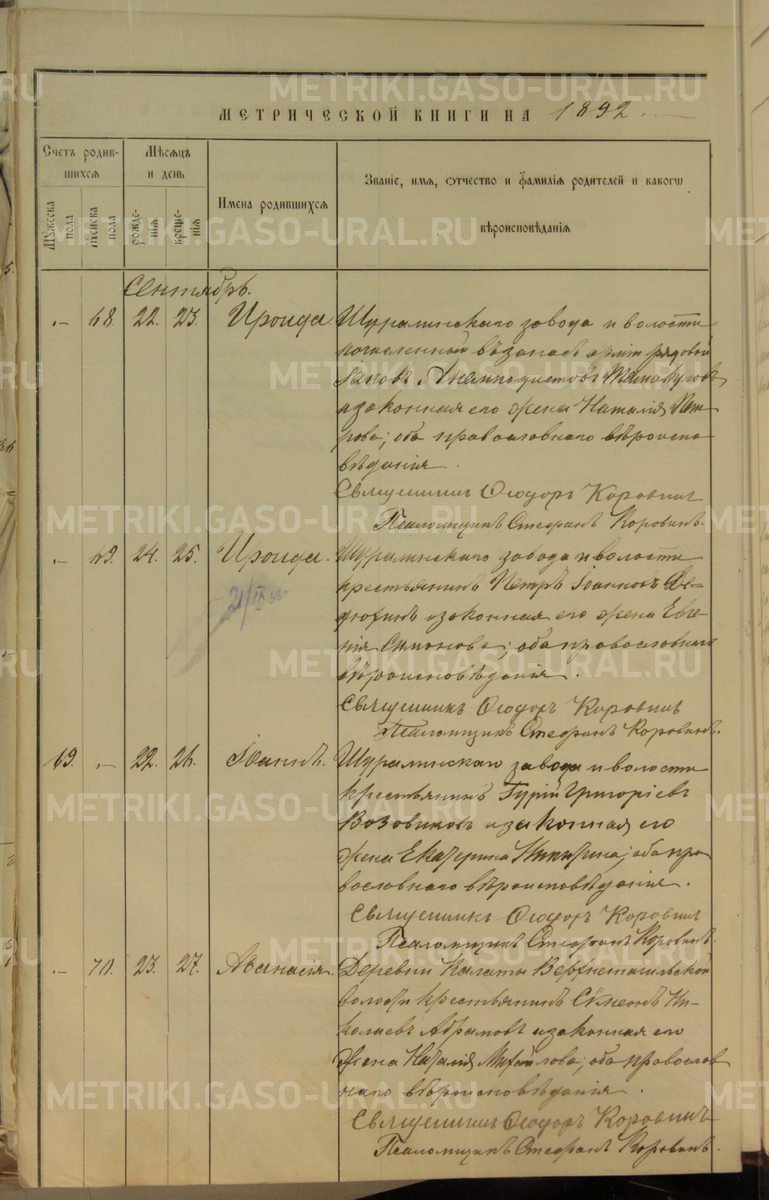 МЕТРИЧЕСКОЙ КНИГИ НА 1892
Счетъ родив-
шихся
Мѣсяцъ
и день
Имена родившихся
Званіе, имя, отчество и фамилія родителей и какогѡ
вѣроисповѣданія
Мужеска пола
Женска пола
рожде-
нія
креще-
нія
Сентябрь.
– 68. 22. 23. Ироида. Шуралинскаго завода и волости
въ запасъ арміи рядовой
Іаковъ
и законная его жена Наталія Пет-
рова; оба православнаго вѣроиспо-
вѣданія.
Священникъ Ѳеодоръ Коровинъ
Псаломщикъ Стефанъ Коровинъ.
– 69. 24. 25. Ироида. Шуралинскаго завода и волости
крестьянинъ Петръ Іоанновъ Ве-
и законная его жена Евге-
нія Симонова; оба православнаго
вѣроисповѣданія.
Священникъ Ѳеодоръ Коровинъ
Псаломщикъ Стефанъ Коровинъ.
69. – 22. 26. Іоаннъ. Шуралинскаго завода и волости
крестьянинъ Гурій Григоріевъ
Возовиковъ и законная его
жена Екатерина Никитина; оба пра-
вославнаго вѣроисповѣданія.
Священникъ Ѳеодоръ Коровинъ
Псаломщикъ Стефанъ Коровинъ.
– 70. 23. 27. Аѳанасія. Деревни Калаты Верхнетагильской
волости крестьянинъ Сѵмеонъ Ни-
колаевъ Абрамовъ и законная его
жена Наталія Михайлова; оба православ
наго вѣроисповѣданія.
Священникъ Ѳеодоръ Коровинъ
Псаломщикъ Стефанъ Коровинъ.
METRIKI.GASO-URAL.RU